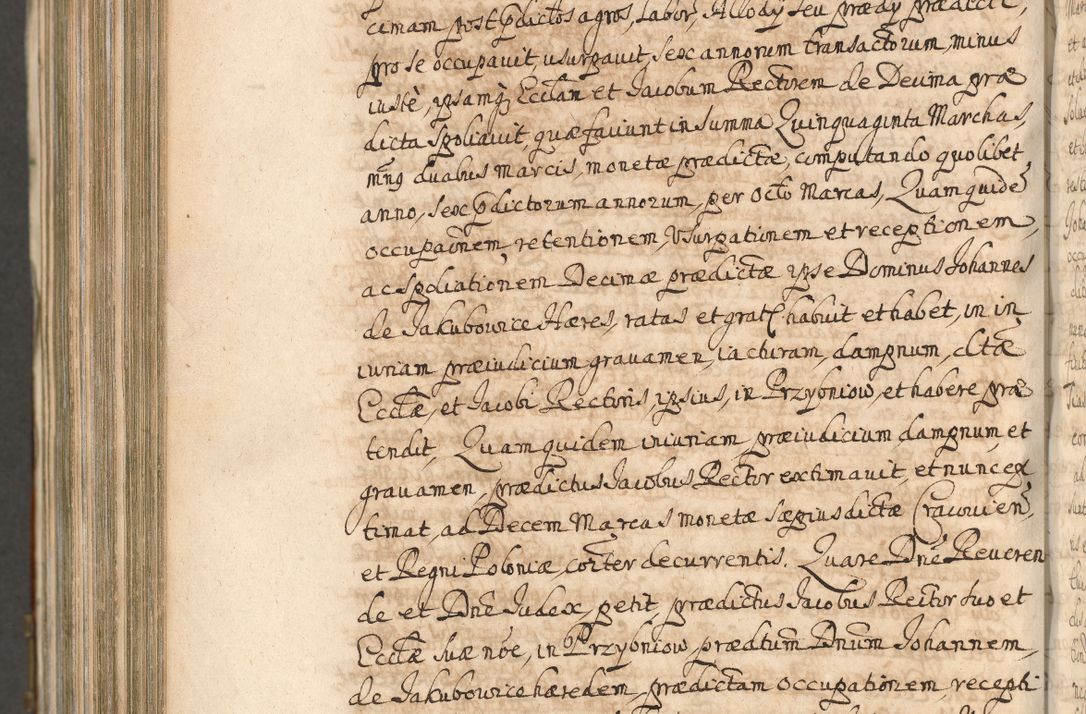 cimam post p̄dictos agros, Labor, Allody seu prædy prædict,
pro se occupavit, usurpavit, sex annorum transactorum, minus
iustè, ipsamq̄ Eccl̄am et Jacobum Rectorem de Decima præ
dicta spoliavit, quæ faciunt in summa Quinquaginta Marchas,
min9 duabus marcis, monetæ prædictæ, computando quolibet
anno, sex p̄dictorum annorum, per octo Marcas, Quam quidē
occupaōnem, retentionem, Usurpationem et receptionem,
ac Spoliationem Decimæ prædictæ ipse Dominus Johannes
de Jakubowice Hæres, ratas et grat, habuit et habet, in in
iuriam præiudicium gravamen, iacturam, dampnum, dctæ
Eccl̄æ, et Jacobi Rectoris, ipsius, in Przybniow, et habere præ
tendit, Quam quidem iniuriam, præiudicium dampnum, et
gravamen, prædictus Jacobus Rector extimavit, et nunc ex
timat, ad Decem Marcas monetæ sæpius dictæ Cracovien̄,
et Regni Poloniæ, coīter decurrentis. Quare Dn̄e Reveren
de et Dn̄e Judex, petit, prædictus Jacobus Rector suo et
Eccl̄æ suæ nōe, in Przybniow, prædctum Dn̄um Johannem,
de Jakubowice hæredem, prædictam occupationem, recepti